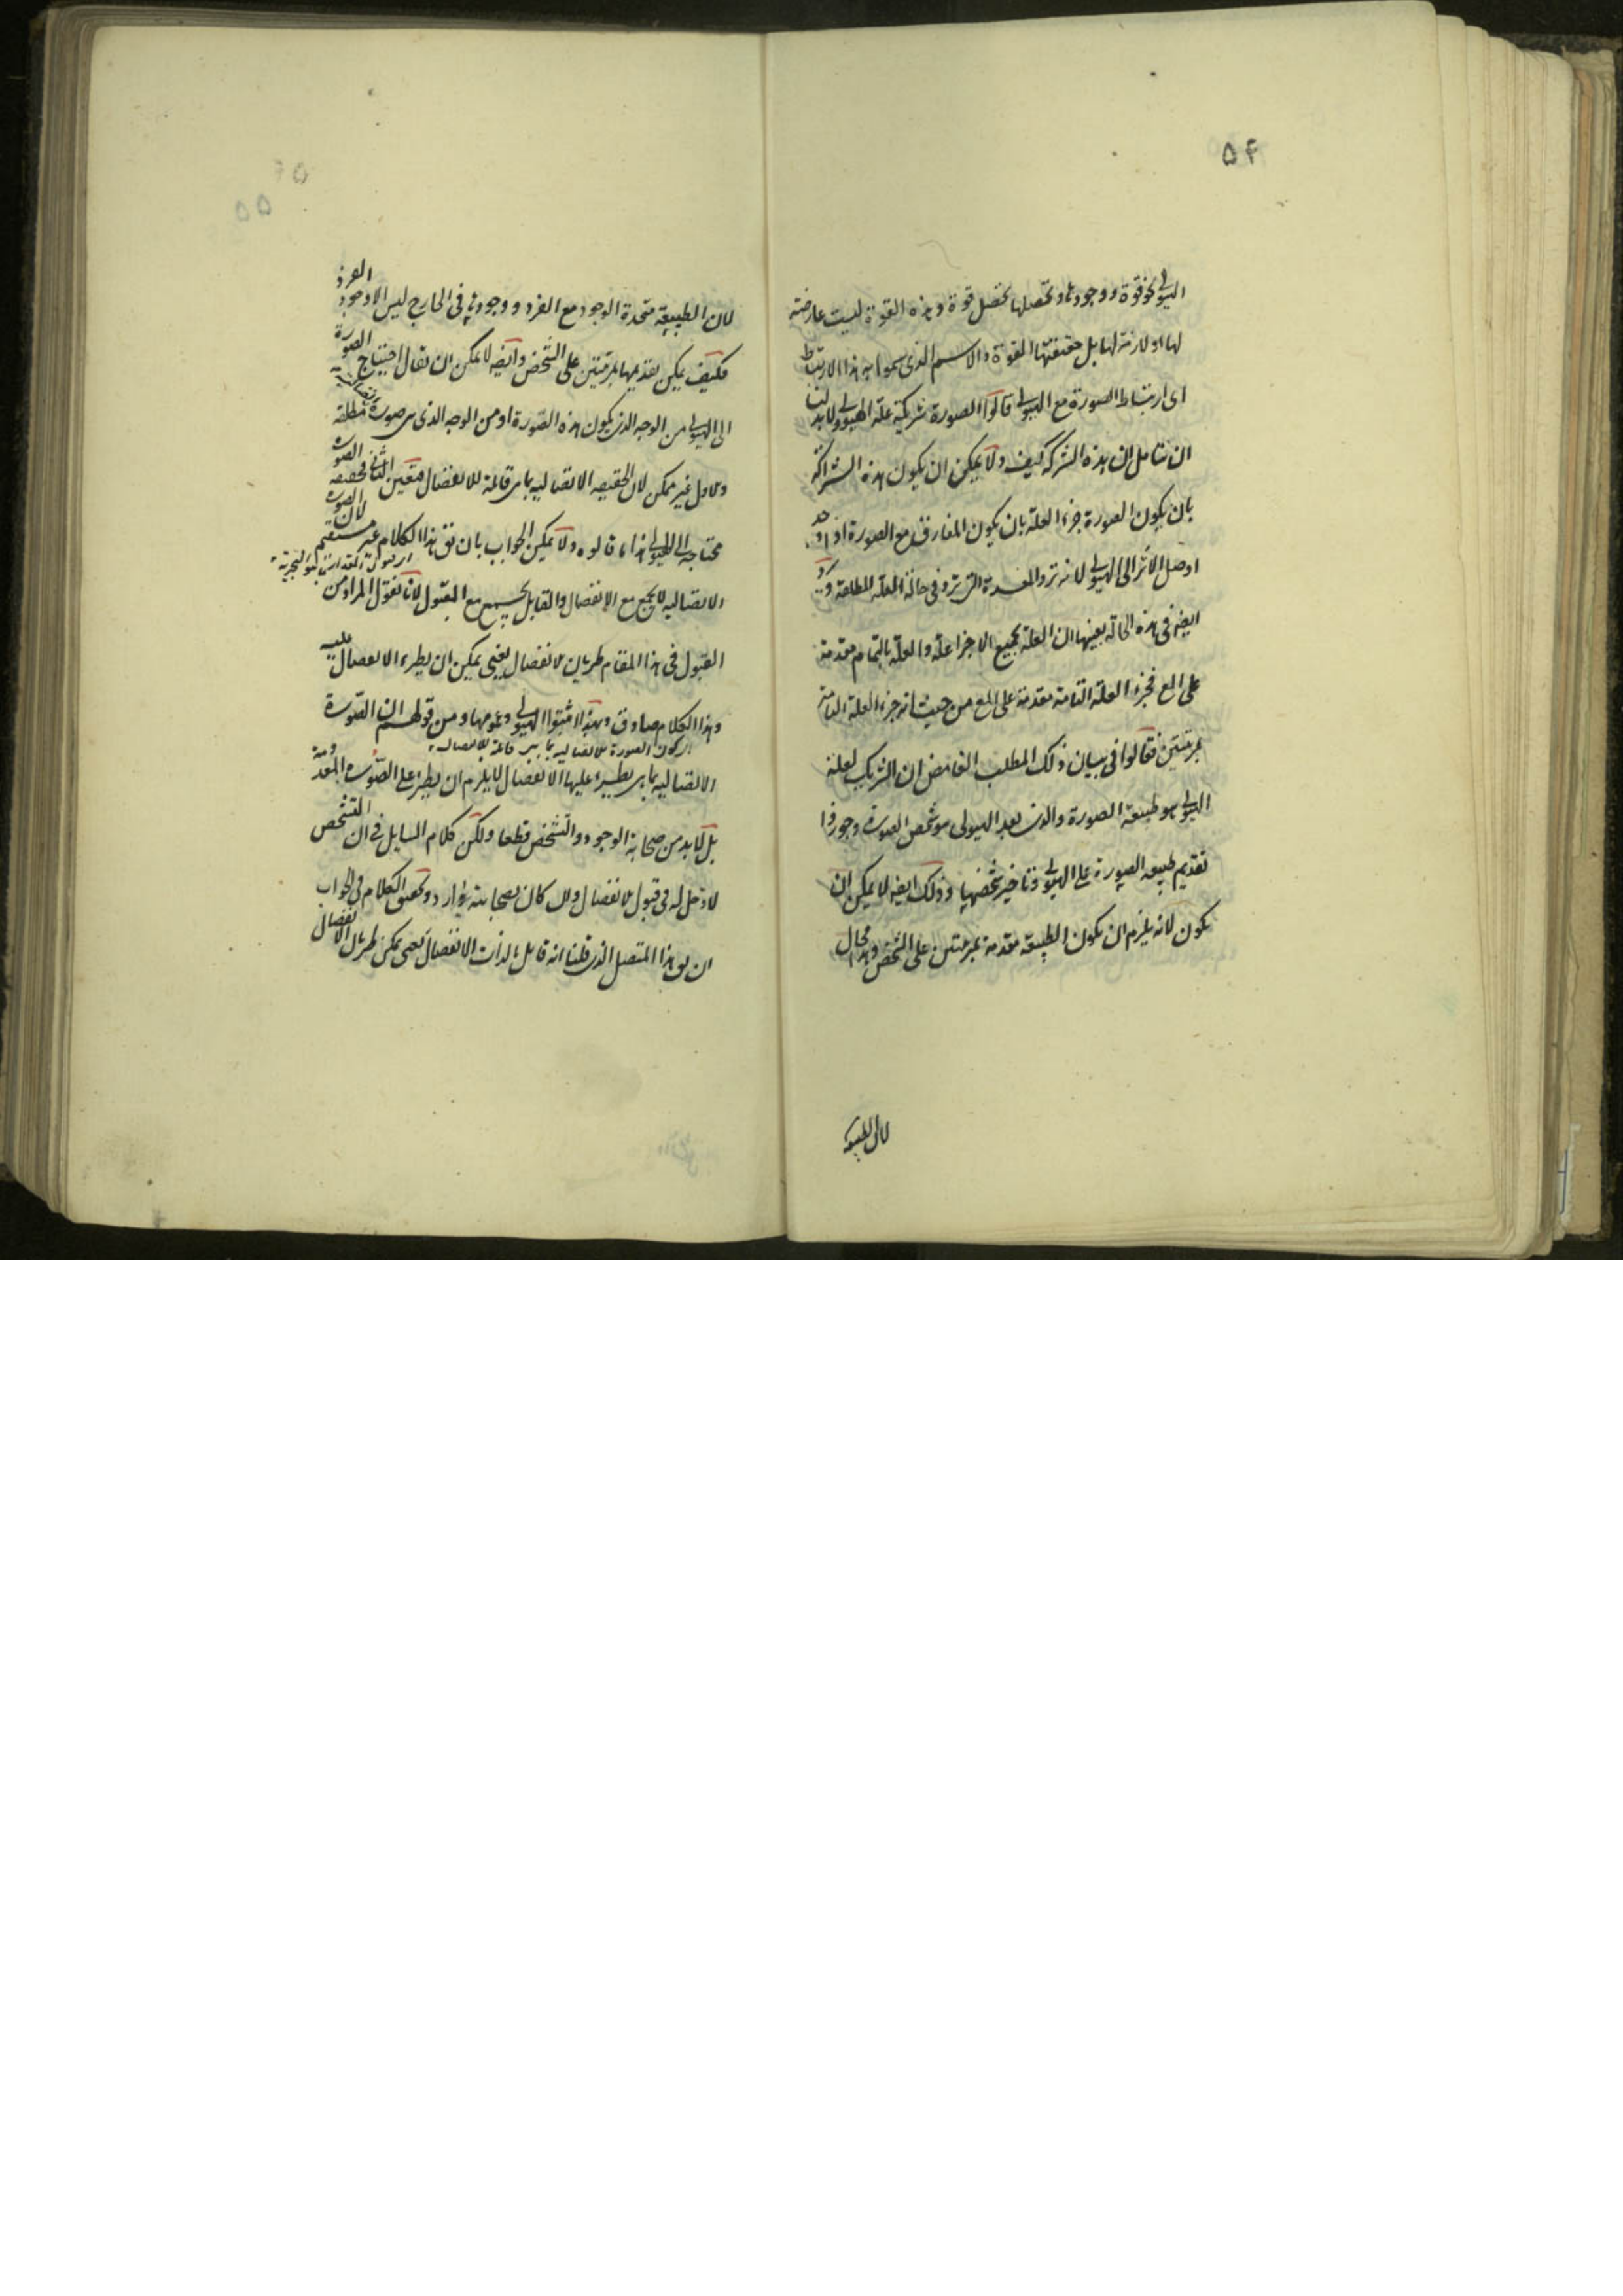 ۵۴
الهیولی نحو قوة ووجودها وتحصلها تحصل قوة وهذه القوة لیست عارضة
لها او لازمة لها بل حقیقتها القوة والاسم الذی سموا به هذا الارتباط
ای ارتباط الصورة مع الهیولی قالوا الصورة شریکة علة الهیولی ولابد لنا
ان نتامل ان هذه الشرکة کیف ولا یمکن ان یکون هذه الشراکة
بان یکون الصورة جزء العلة بان یکون المفارق مع الصورة اذا وحد
اوصل الاثر الی الهیولی لانه ترد المفسدة التی ترد فی حالة العلة المطلقة
ایضا فی هذه الحالة بعینها ان العلة بجمیع الاجزا علة والعلة بالتمام مقدمة
علی المع فجزء العلة التامة مقدمة علی المع من حیث انه جزء العلة التامة
بمرتبتین فقالوا فی بیان ذلک المطلب الغامض ان الشریک لعلة
الهیولی هو طبیعة الصورة والذی بعد الهیولی هو شخص الصورة وجوزوا
تقدیم طبیعه الصورة علی الهیولی وتاخیر شخصها وذلک ایضه لا یمکن ان
یکون لانه یلزم ان یکون الطبیعة مقدمة بمرتبتین علی الشخص وهذا محال
لان الطبیعة
۵۵
لان الطبیعة متحدة الوجود مع الفرد ووجودها فی الخارج لیس الا وجود الفرد
فکیف یمکن تقدیمها بمرتبتین علی الشخص وایضه لا یمکن ان یقال احتیاج الصورة
الی الهیولی من الوجه الذی یکون هذه الصورة او من الوجه الذی هی صورة مطلقة
والاول غیر ممکن لان الحقیقه الاتصالیه بما هی قابلة للانفصال فتعین الثانی فحقیقه الصورة
محتاجه الی الهیولی هذا ما قالوه ولا یمکن الجواب بان یق هذا الکلام غیر مستقیم لان الصورة
الاتصالیه لا یجمع مع الانفصال والقابل یجتمع مع المقبول لانا نقول المراد من
القبول فی هذا المقام طریان الانفصال یعنی یمکن ان یطرء الانفصال علیه
وهذا الکلام صادق وبهذا اثبتوا الهیولی وعمومها ومن قولهم ان الصورة
ای کون الصورة الاتصالیه بما هی قابلة للانفصال
الاتصالیه بما هی یطرء علیها الانفصال لا یلزم ان یطرء علی الصورة المعدومة
بل لابد من صحابة الوجود والتشخص قطعا ولکن کلام السایل فی ان التشخص
لا دخل له فی قبول الانفصال وان کان بصحابته وارد وتحقیق الکلام فی الجواب
ان یق هذا المتصل الذی قلنا انه قابل بالذات الانفصال یعنی یمکن طریان الانفصال